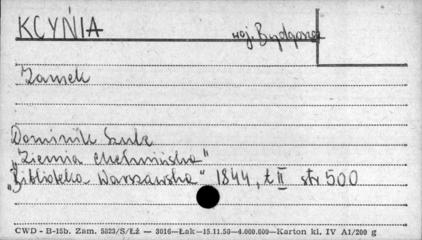 KCYNIA woj. Bydgoszcz
Zamek
Dominik Szulc
"Ziemia Chełmińska"
"Biblioteka Warszawska" 1844, t. II str 500
CWD - B-15b. Zam. 5523/S/Łż — 3016—Łak—15.11.50—4.000.000—Karton kl. IV A1/200 g